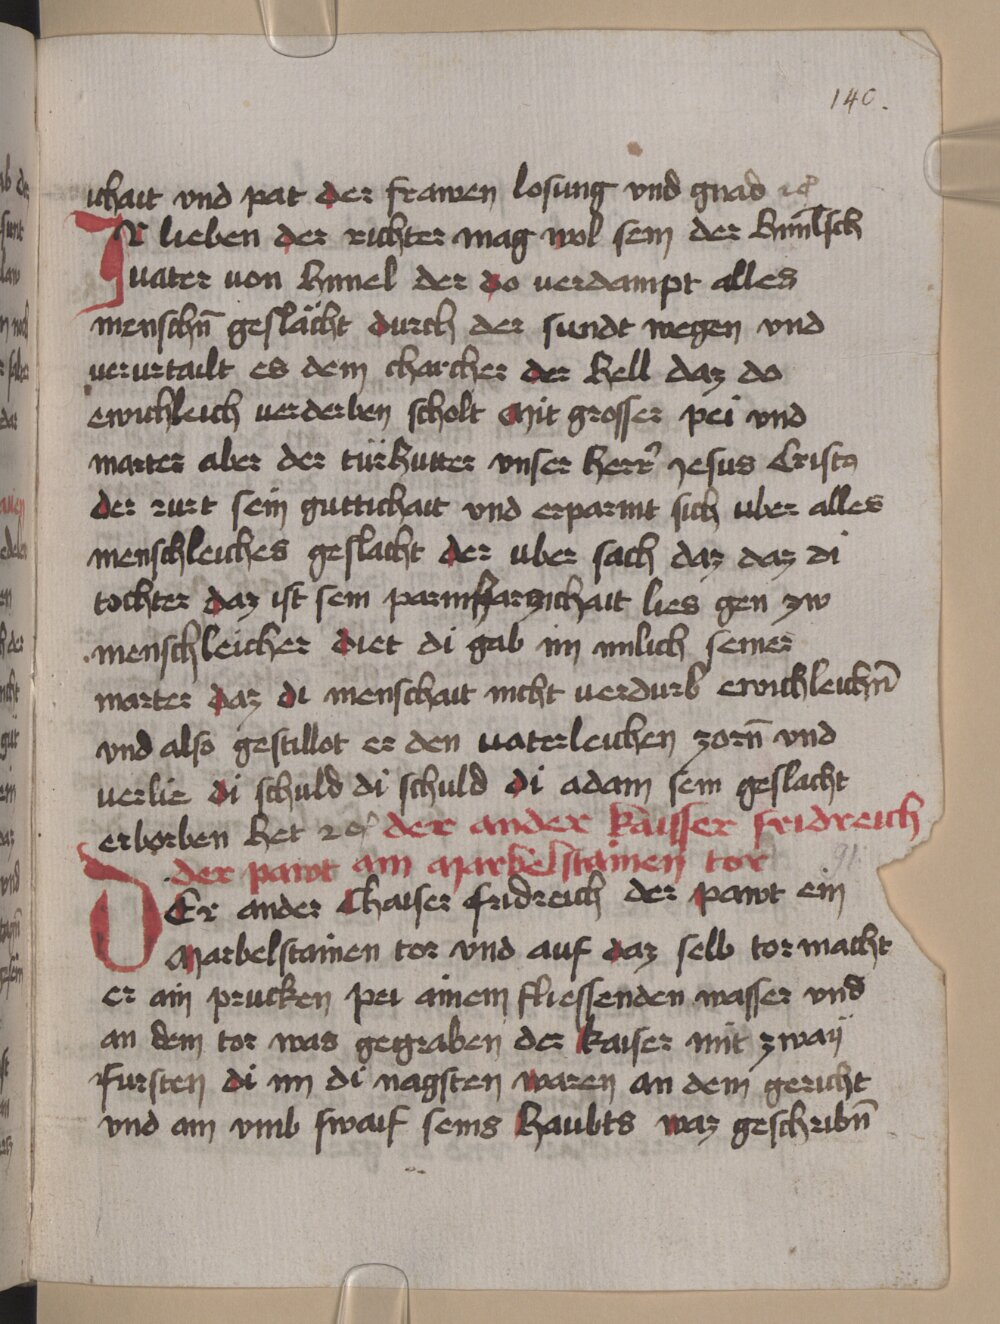 140.
ichait vnd pat der frawen losung vnd gnad ⁊c̊
Ir lieben der richter mag wol sein der himlisch
vater von himel der do verdampt alles
menschn̄ geslächt durch der sundt wegen vnd
verurtailt es dem charcher der hell daz do
ewichleich verderben scholt Mit grosser pei vnd
marter aber der türhutter vnser herr Jesus Cristo
der rurt sein guttichait vnd erparmt sich uber alles
menschleiches geslacht der uber sach daz daz di
tochter daz ist sein parmharzichait lies gen zw
menschleicher diet di gab im milich seiner
marter daz di menschait nicht verdurb ewichleichn̄
vnd also gestillot er den vaterleichen zorn̄ vnd
verlie di schuld di schuld di adam sein geslacht
erborben het ⁊c̊ der ander kaisser fridreich
der pawt ain Marbelstainen tor
91
DEr ander Chaiser fridreich der pawt ein
Marbelstainen tor vnd auf daz selb tor macht
er ain prucken pei ainem fliessenden wasser vnd
an dem tor was gegraben der kaiser mit zwaÿ
fursten di im di nagsten waren an dem gericht
vnd am vmb swaif seins haubts waz geschribn̄